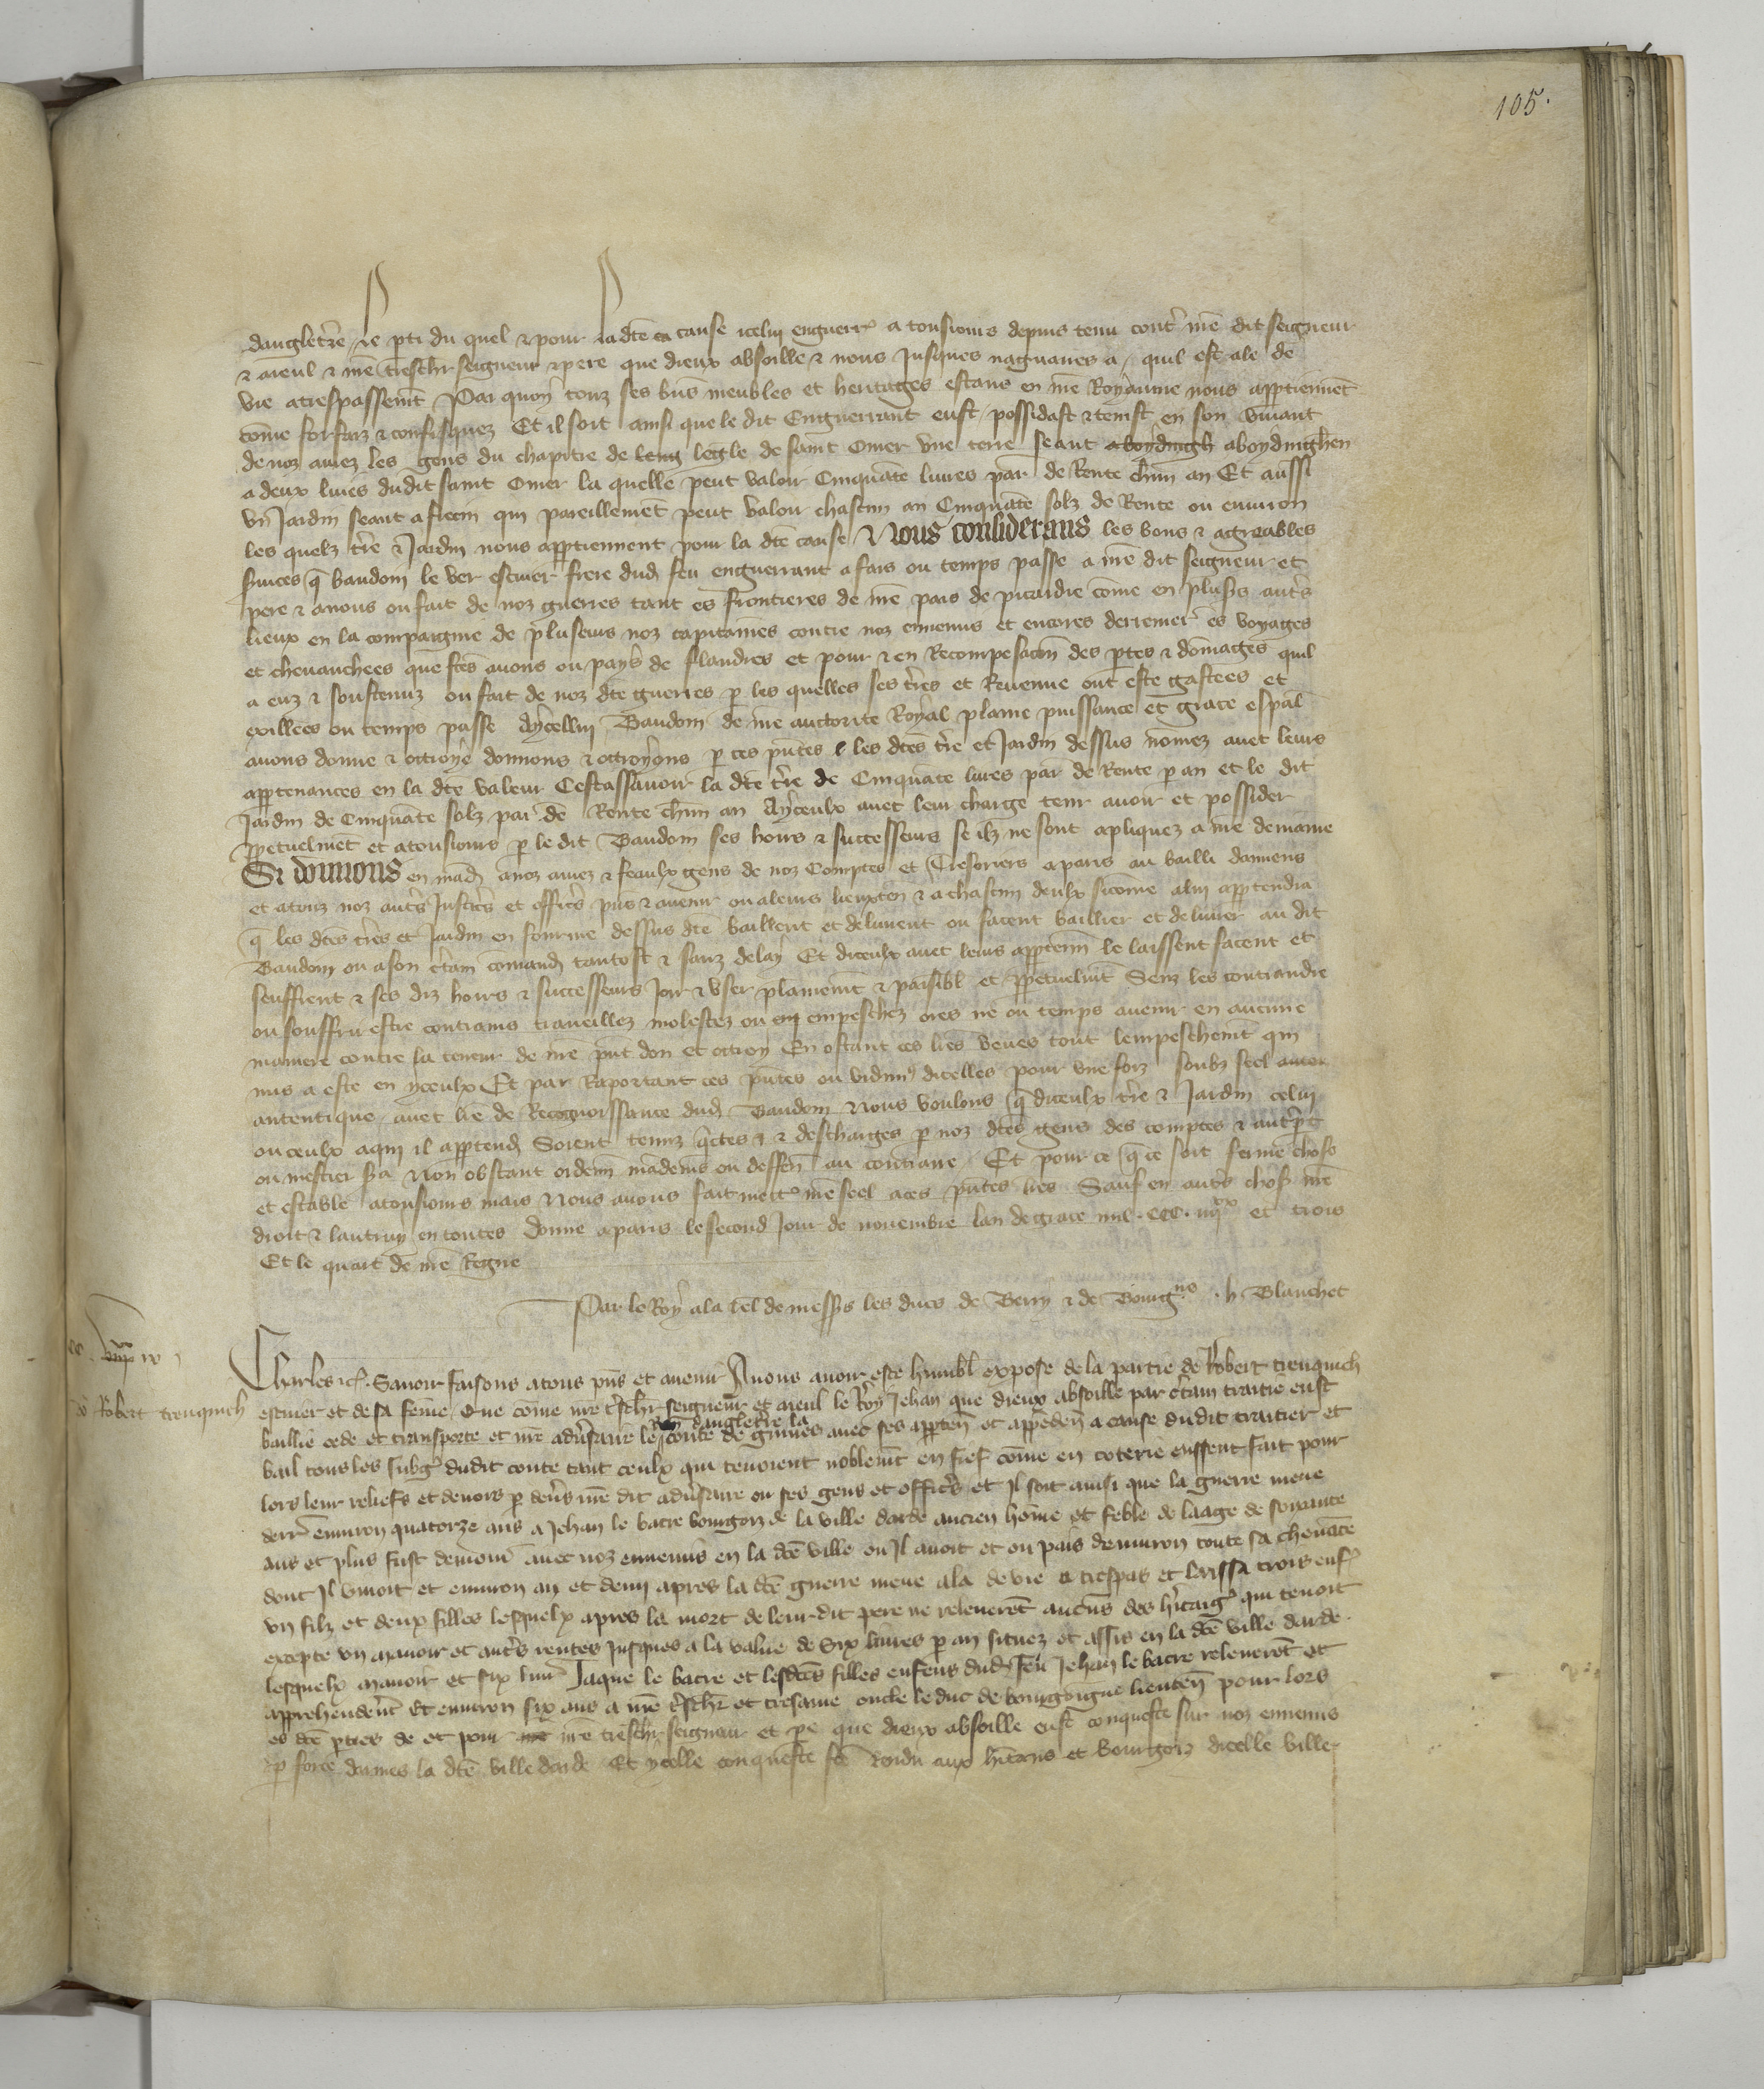 105.
dangleterre le p̄ti du quel & pour la dc̄e cause icelui enguerr̄ a tousiours depuis tenu contr̄ nr̄e dit seigneur
& aieul & nr̄e treschr̄ seigneur & pere que dieux absoille & nous Jusques naguaires a / quil est ale de
vie a trespassemēt Par quoy touz ses biēs meubles et heritages estans en nr̄e Royaume nous apptiennēt
cōme forfaiz & confisquez Et il soit ainsi que le dit Enguerrant eust / possidast & tenist en son viuant
de noz amez les gens du chapitre de legl̄e de saint Omer vne terre seant aboydingh aboydinghen
a deux lieues dudit saint Omer la quelle peut valoir Cinquāte liures par̄ de Rente chūn an Et aussi
vn Jardin seant a qui pareillemēt peut valoir chascun an Cinquāte solz de Rente ou enuiron
les quelz tr̄e & Jardin nous apptiennent pour la dc̄e cause & Nous considerans les bons & agreables
s̄uices q̄ baudoin le ver escuier frere dud̄ feu enguerrant a fais ou temps passe a nr̄e dit seigneur et
pere & a nous ou fait de noz guerres tant es frontieres de nr̄e pais de picardie cōme en plus̄rs autr̄s
lieux en la compaignie de pluseurs noz capitaines contre noz ennemis et encores derrenier̄ es voyages
et cheuauchees que fc̄es auons ou pays de flandres et pour & en Recompensacōn des p̄tes & dōmages quil
a euz & soustenuz ou fait de noz dc̄es guerres p̄ les quelles ses tr̄es et Reuenue ont este gastees et
exillees ou temps passe Aycellui Baudoin de nr̄e auctorite Royal plaine puissance et grace esp̄al
auons donne & octroye donnons & octroyons p̄ ces p̄ntes les dc̄es tr̄e et Jardin dessus nōmez auec leurs
apptenances en la dc̄e valeur Cestassauoir la dc̄e tr̄e de Cinquāte liures par̄ de Rente p̄ an et le dit
Jardin de Cinquāte solz par̄ de Rente chūn an Ayceulx auec leur charge tenir auoir et possider
p̄petuelmēt et atousiours p̄ le dit Baudoin ses hoirs & successeurs se ilz ne sont apliquez a nr̄e demaine
Si donnons en mād̄ a noz amez & feaulx gens de noz Comptes et Tresoriers a paris au bailli damiens
et atouz noz autr̄s Justic̄rs et offic̄rs p̄ns & auenir ou a leurs lieuxten̄ & a chascun deulx sicōme a lui apptendra
q̄ les dc̄es tr̄es et Jardin en fourme dessus dc̄e baillent et deliurent ou facent baillier et deliurer au dit
Baudoin ou a son c̄tain cōmand̄ tantost & sanz delay Et diceulx auec leurs appten̄ le laissent facent et
seuffrent & ses diz hoirs & successeurs Joir & vser plainemt̄ & paisibl̄ et p̄petuelmt̄ Senz les contraindre
ou souffrir estre contrains trauaillez molestez ou empeschez ores ne ou temps auenir en aucune
maniere contre la teneur de nr̄e p̄nt don et octroy En ostant ces lr̄es veues tout lempeschemt̄ qui
mis a este en yceulx Et par Raportant ces p̄ntes ou vidim⁹ dicelles pour vne foiz soubz seel
autentique auec lr̄e de Recognoissance dud̄ Baudoin Nous voulons q̄ diceulx tr̄e & Jardin celui
ou ceulx aqui il apptend̄ Soient tenuz q̄ctes & & descharges p̄ noz dc̄es gens des comptes &
ou mestier s̄a Non obstant ordeñ mādemt̄s ou deffen̄ au contraire / Et pour ce q̄ ce soit ferme chose
et estable atousiours mais Nous auons fait mettr̄ nr̄e seel a ces p̄ntes lr̄es Sauf en autr̄s chos̄ nr̄e
droit & lautruy en toutes Donne a paris le second Jour de nouembre lan de grace mil . ccc . iiij^xx et trois
Et le quart de nr̄e Regne
Par le Roy a la rel̄ de mess̄rs les ducs de Berry & de Bourg^ne . h. Blanchet
de Robert trenquich
Charles &c̄. Sauoir faisons a tous p̄ns et auenir Auous auoir este humbl̄ expose de la partie de Robert trenquich
escuier et de sa fēme / Que cōme nr̄e tr̄schr̄ seigneur et aieul le Roy Jehan que dieux absoille par c̄tain traitie eust
Roy dangleterre la
baillie cede et transporte et nr̄e adūsaire le conte de guines auec ses appten̄ et appēden̄ a cause dudit traitier et
bail tous les subḡ dudit conte tant ceulx qui tenoient noblemt̄ en fief cōme en coterie eussent fait pour
lors leur reliefs et deuoirs p̄ deūs nr̄e dit adūsaire ou ses gens et offic̄rs et Il soit ainsi que la guerre meue
derr̄ enuiron quatorze ans a Jehan le bacre bourgois de la ville darde ancien hōme et feble de laage de soixante
ans et plus fust demour̄ auec noz ennemis en la dc̄e ville ou Il auoit et ou pais denuiron toute sa cheuāce
dont Il viuoit et enuiron an et demi apres la dc̄e guerre meue ala de vie a trespas et laissa trois enf̄
vn filz et deux filles lesquelx apres la mort de leur dit pere ne releuerēt aucuns des hr̄itaiḡ qui tenoit
excepte vn manoir et autr̄s rentes Jusques a la value de Six liures p̄ an situez et assis en la dc̄e ville darde.
lesquelx manoir et six liur̄ Jaque le bacre et lesdc̄es filles enfens dud̄ feu Jehan le bacre releuerēt et
apprehendēnt Et enuiron six ans a nr̄e tr̄schr̄ et tresame oncle le duc de bourgoigne lieuten̄ pour lors
es dc̄es p̄ties de et pour nr̄e treschr̄ seigneur et p̄e que dieux absoille eust conqueste sur noz ennemis
p̄ force darmes la dc̄e ville darde Et ycelle conqueste fc̄e rendu aux hītans et bourgois dicelle ville